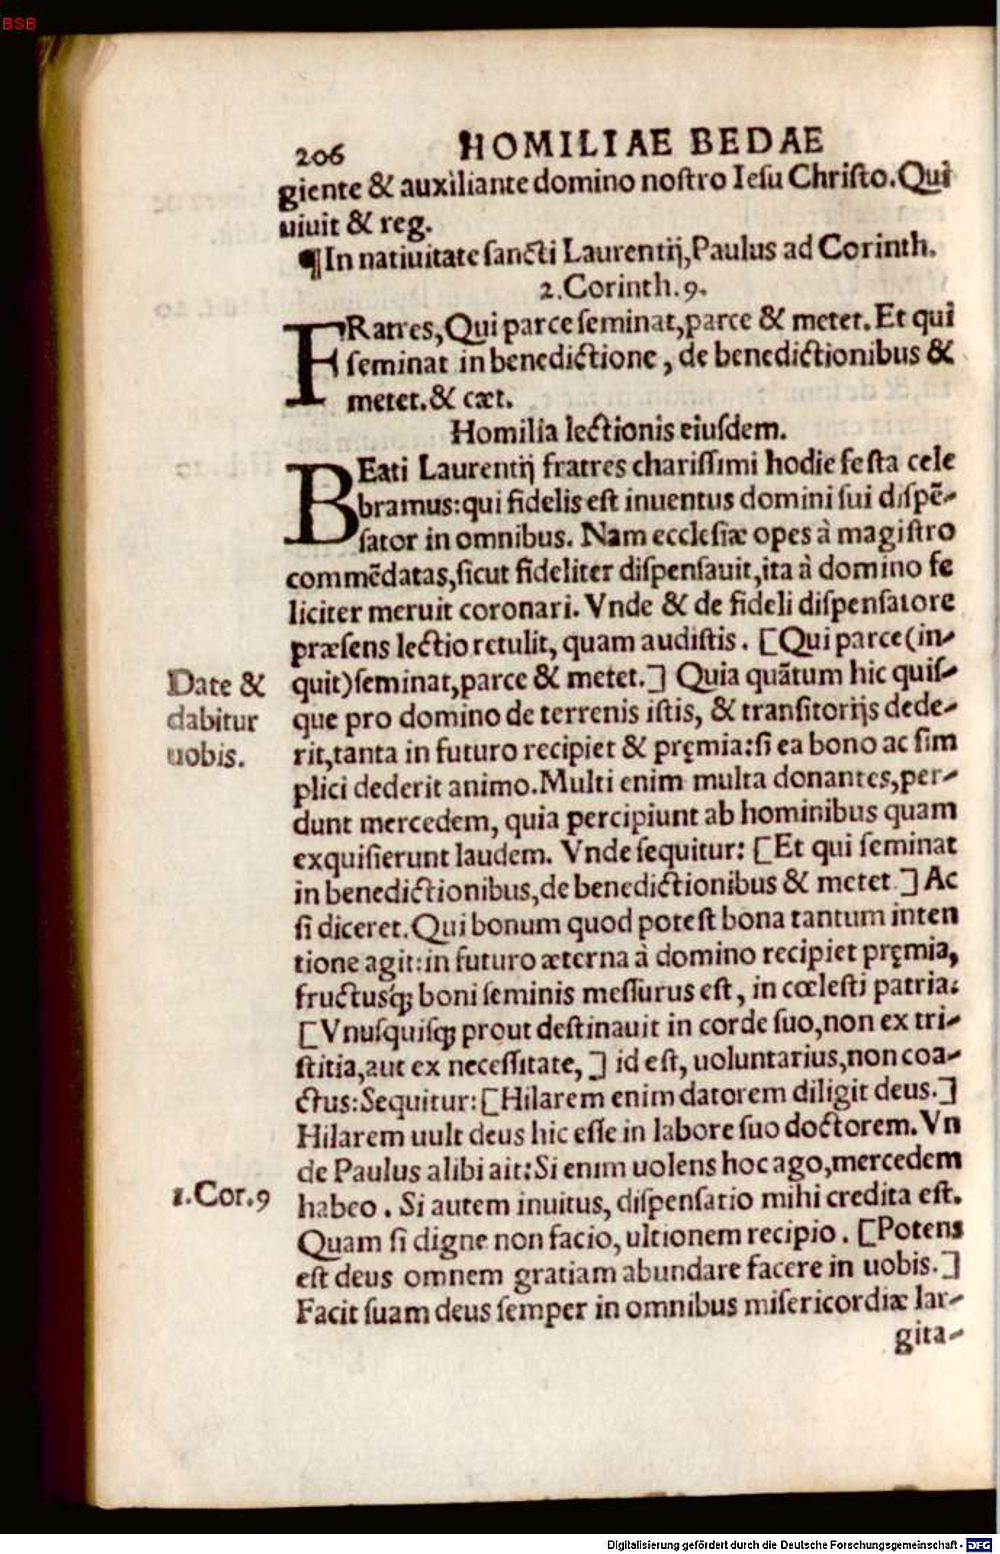 BSB
206 HOMILIAE BEDAE
giente & auxiliante domino noſtro Ieſu Chriſto. Qui
uiuit & reg.
¶In natiuitate ſancti Laurentij, Paulus ad Corinth.
2. Corinth. 9.
FRatres, Qui parce ſeminat, parce & metet. Et qui
ſeminat in benedictione, de benedictionibus &
metet. & cæt.
Homilia lectionis eiuſdem.
BEati Laurentij fratres chariſſimi hodie feſta cele
bramus: qui fidelis eſt inuentus domini ſui diſpẽ-
ſator in omnibus. Nam eccleſiæ opes à magiſtro
commẽdatas, ſicut fideliter diſpenſauit, ita à domino fe
liciter meruit coronari. Vnde & de fideli diſpenſatore
præſens lectio retulit, quam audiſtis. [Qui parce (in-
quit) ſeminat, parce & metet.] Quia quãtum hic quiſ-
Date &
dabitur
uobis.
que pro domino de terrenis iſtis, & tranſitorijs dede-
rit, tanta in futuro recipiet & pręmia: ſi ea bono ac ſim
plici dederit animo. Multi enim multa donantes, per-
dunt mercedem, quia percipiunt ab hominibus quam
exquiſierunt laudem. Vnde ſequitur: [Et qui ſeminat
in benedictionibus, de benedictionibus & metet.] Ac
ſi diceret. Qui bonum quod poteſt bona tantum inten
tione agit: in futuro æterna à domino recipiet pręmia,
fructusq́ue boni ſeminis meſſurus eſt, in cœleſti patria:
[Vnuſquiſq; prout deſtinauit in corde ſuo, non ex tri-
ſtitia, aut ex neceſſitate,] id eſt, uoluntarius, non coa-
ctus: Sequitur: [Hilarem enim datorem diligit deus.]
Hilarem uult deus hic eſſe in labore ſuo doctorem. Vn
de Paulus alibi ait: Si enim uolens hoc ago, mercedem
1. Cor. 9
habeo. Si autem inuitus, diſpenſatio mihi credita eſt.
Quam ſi digne non facio, ultionem recipio. [Potens
eſt deus omnem gratiam abundare facere in uobis.]
Facit ſuam deus ſemper in omnibus miſericordiæ lar-
gita-
Digitalisierung gefördert durch die Deutsche Forschungsgemeinschaft - DFG